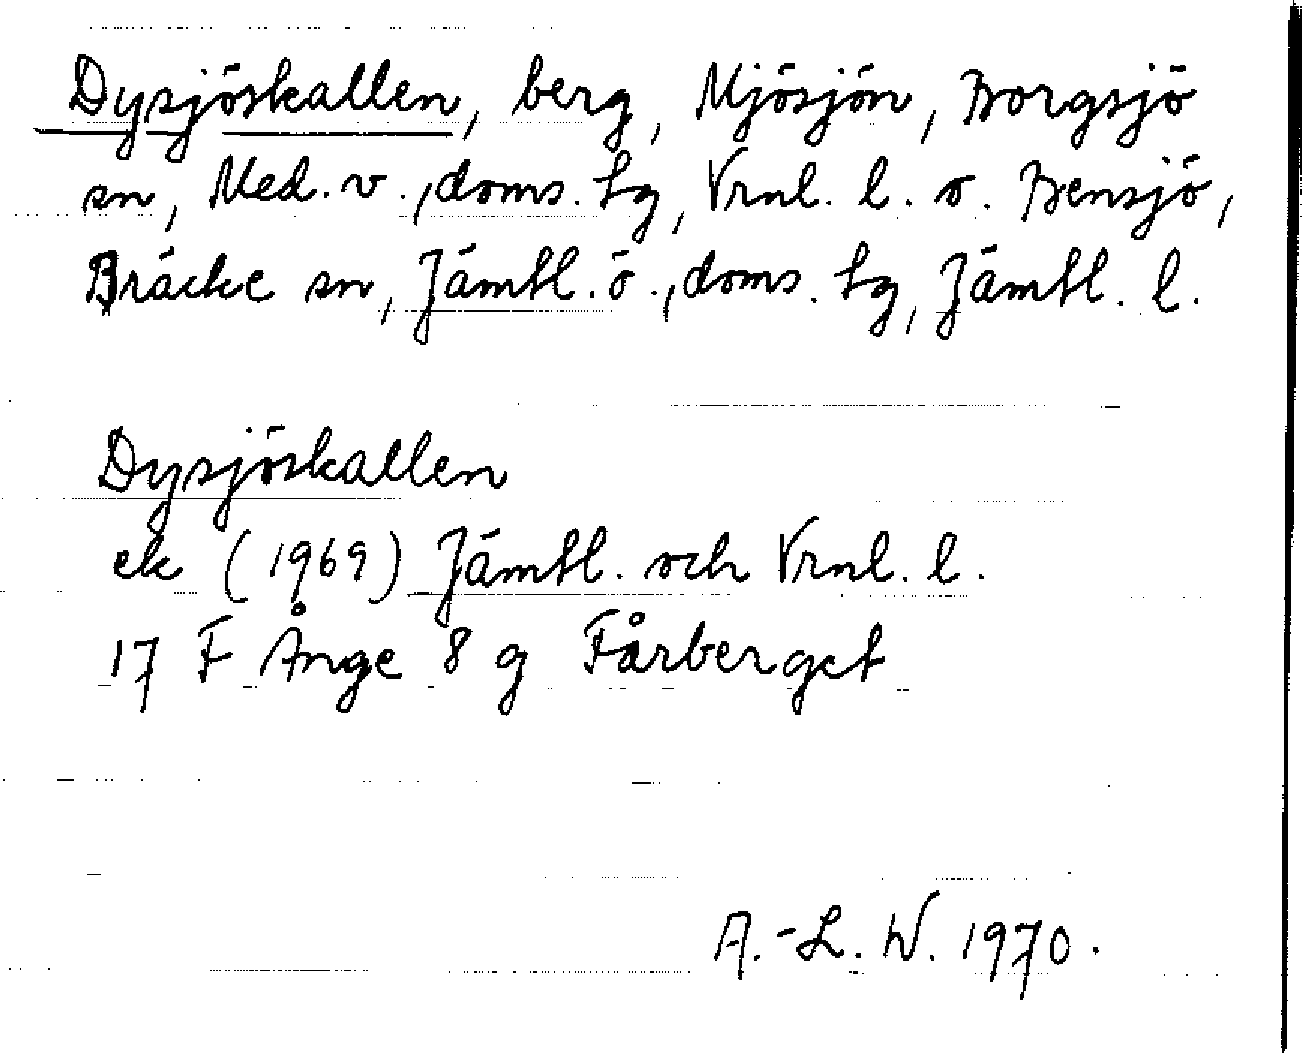 Dysjöskallen, berg, Mjösjön, Borgsjö
sn, Med. v., doms. tg, Vrnl. l. o. Bensjö,
Bräcke sn, Jämtl. ö., doms. tg, Jämtl. l.
Dysjöskallen
ek (1969) Jämtl. och Vrnl. l.
17 F Ånge 8 g Fårberget
A.-L. W. 1970.